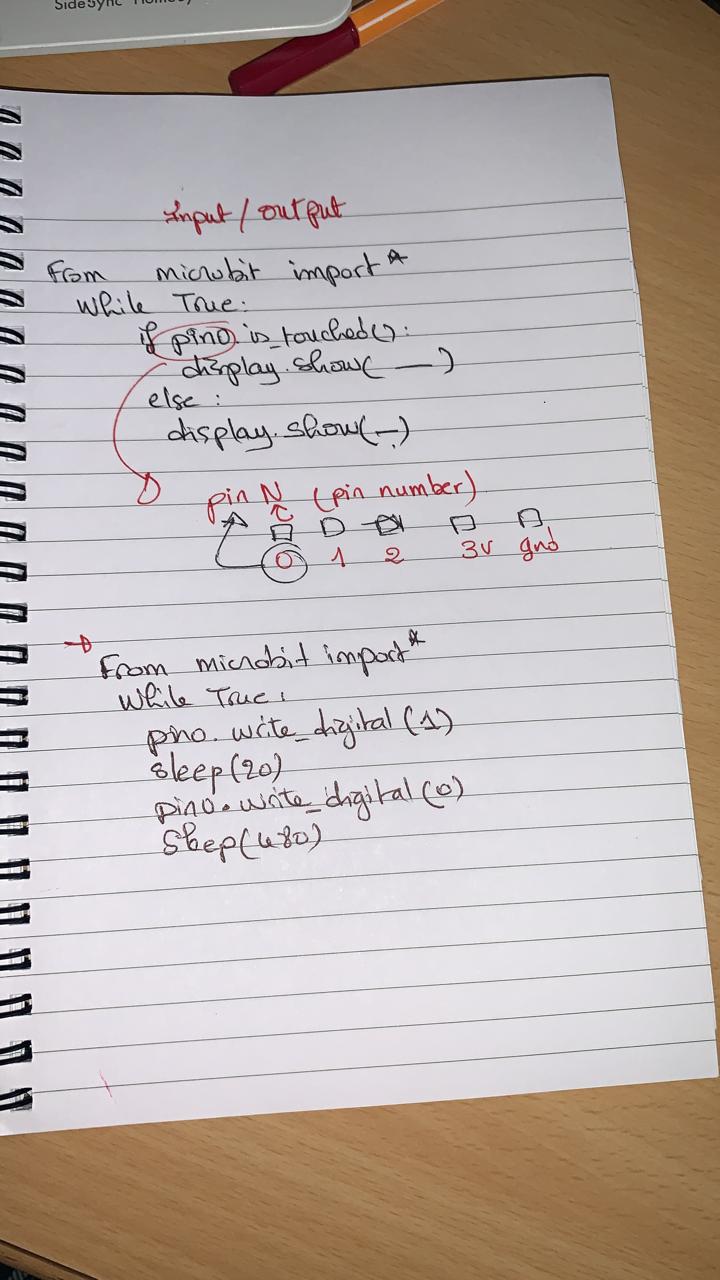 SideSync
Input / output
From microbit import *
While True:
if pin0.is_touched():
display.show( — )
else :
display.show( — )
pin N (pin number)
0 1 2 3v gnd
From microbit import *
While True:
pin0. write_digital (1)
sleep(20)
pin0.write_digital (0)
Sleep(480)